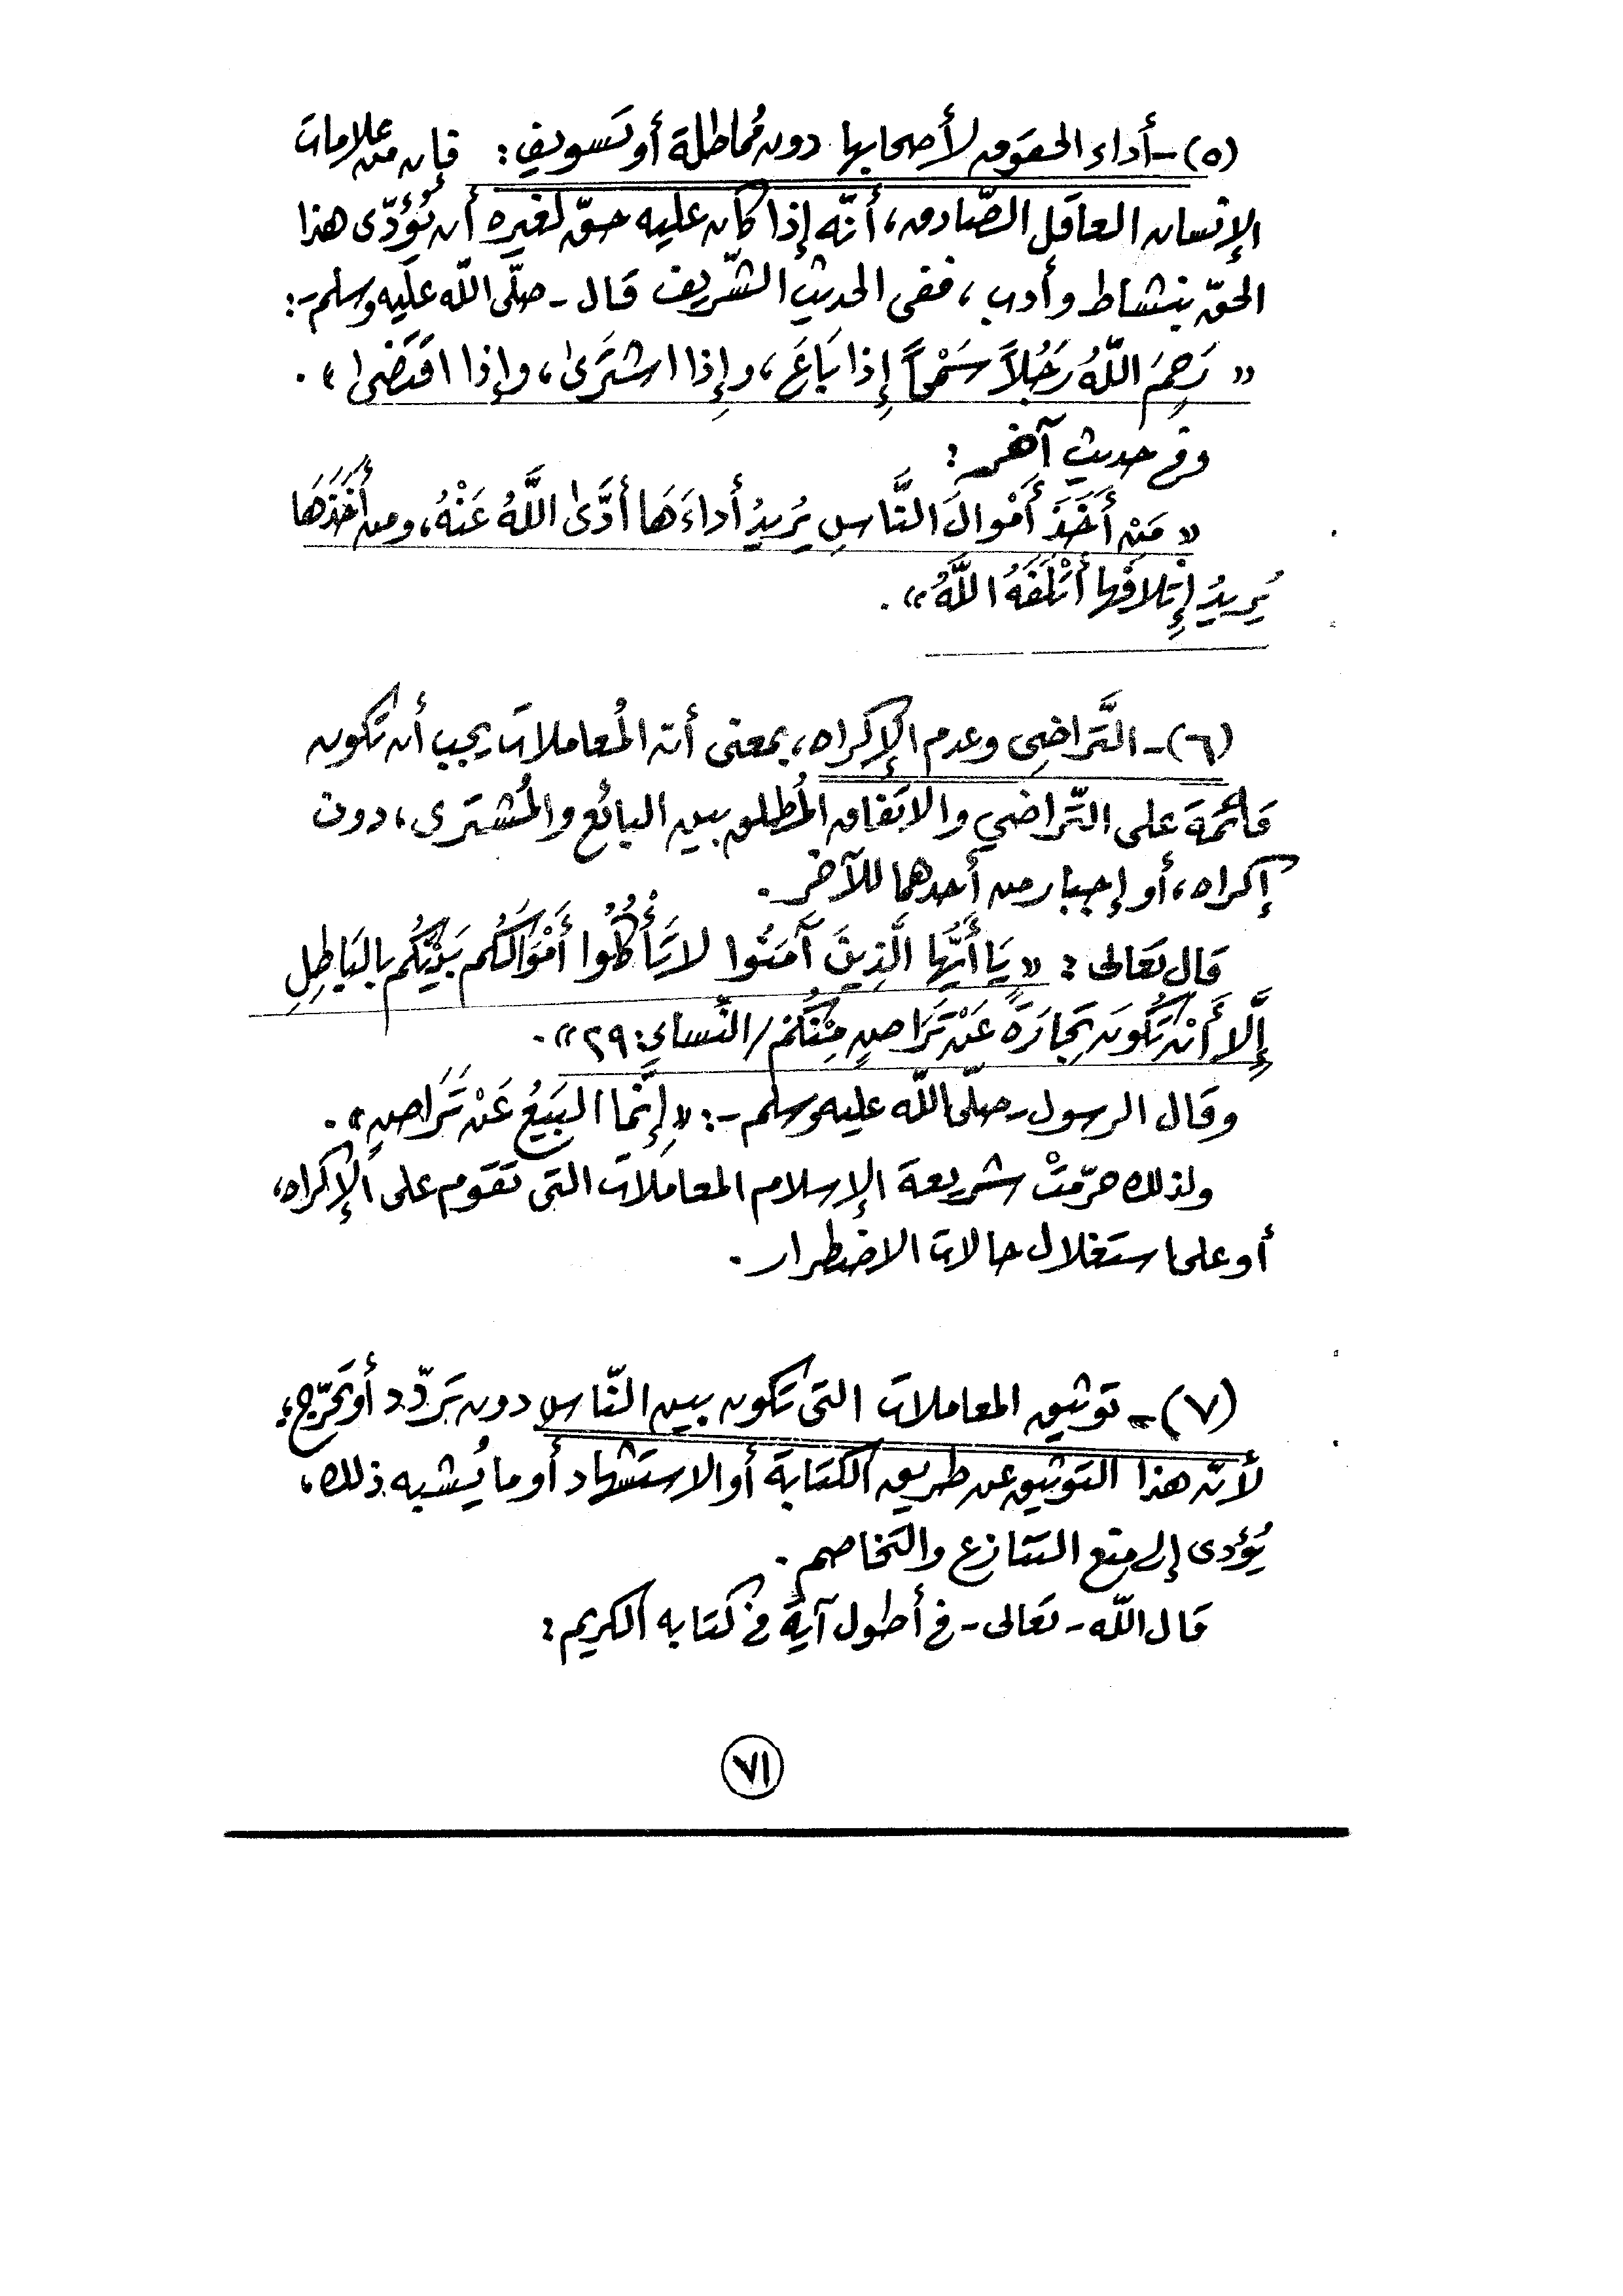 (٥)- أداء الحقوق لأصحابها دون مُماطلة أو تسويف: فإن من علامات
الإنسان العاقل الصّادق، أنّه إذا كان عليه حقّ لغيره أن يُؤدّى هذا
الحقّ بنشاط وأدب، ففى الحديث الشّريف قال - صلّى اللّه عليه وسلم -:
« رَحِمَ اللّهُ رَجُلاً سَمْحاً إِذا بَاعَ، وإِذا اشتَرَى، وإذا اقتَضَى » .
وفى حديث آخر :
« مَنْ أَخَذَ أَمْوالَ النَّاسِ يُرِيدُ أداءَهَا أدَّى اللَّهُ عَنْهُ، ومن أَخَذَهَا
يُريدُ إِتلافَها أَتْلَفَهُ اللَّهُ » .
(٦)- التَّراضِى وعدم الإكراه، بمعنى أنّ المُعاملات يجب أن تكون
قائمة على التّراضي والاتفاق المُطلق بين البائع والمُشترى، دون
إكراه، أو إجبار من أحدهما للآخر .
قال تعَالى : « يَا أَيُّهَا الَّذِينَ آمَنُوا لا تَأْكُلُوا أَمْوَالَكُم بَيْنَكُم بالبَاطِلِ
إِلَّا أَنْ تَكُونَ تِجَارَةً عَنْ تَرَاضٍ مِنْكُمْ / النّساء: ٢٩ » .
وقال الرسول - صلّى اللّه عليه وسلم -: « إِنَّما البَيْعُ عَنْ تَرَاضٍ » .
ولذلك حرّمتْ شريعة الإسلام المعاملات التى تقوم على الإكراه،
أو على استغلال حالات الاضطرار .
(٧)- توثيق المعاملات التى تكون بين النّاس دون تردّد أو تحرّج،
لأنّ هذا التوثيق عن طريق الكتابة أو الاستشهاد أو ما يُشبه ذلك،
يُؤدى إلى منع التنازع والتخاصم .
قال اللّه - تعالى - فى أطول آية فى كتابه الكريم :
٧١